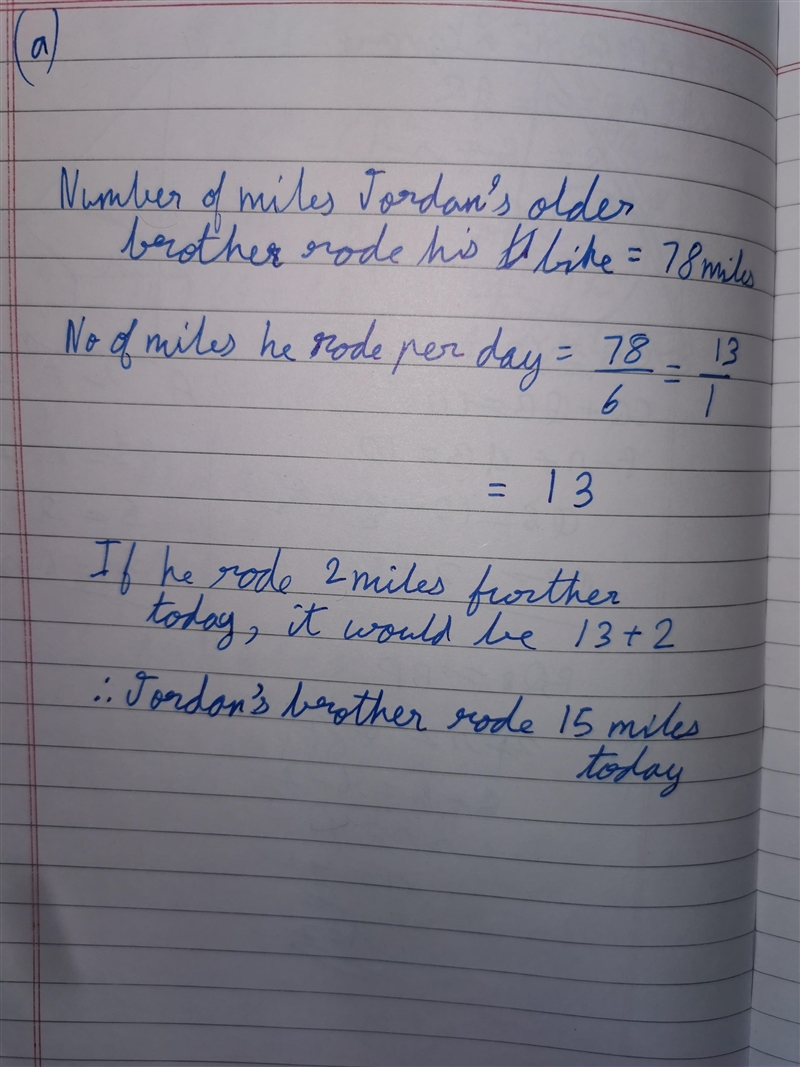 (a)
Number of miles Jordan's older
brother rode his bike = 78 miles
No of miles he rode per day = 78/6 = 13/1
= 13
If he rode 2 miles further
today, it would be 13 + 2
∴ Jordan's brother rode 15 miles
today